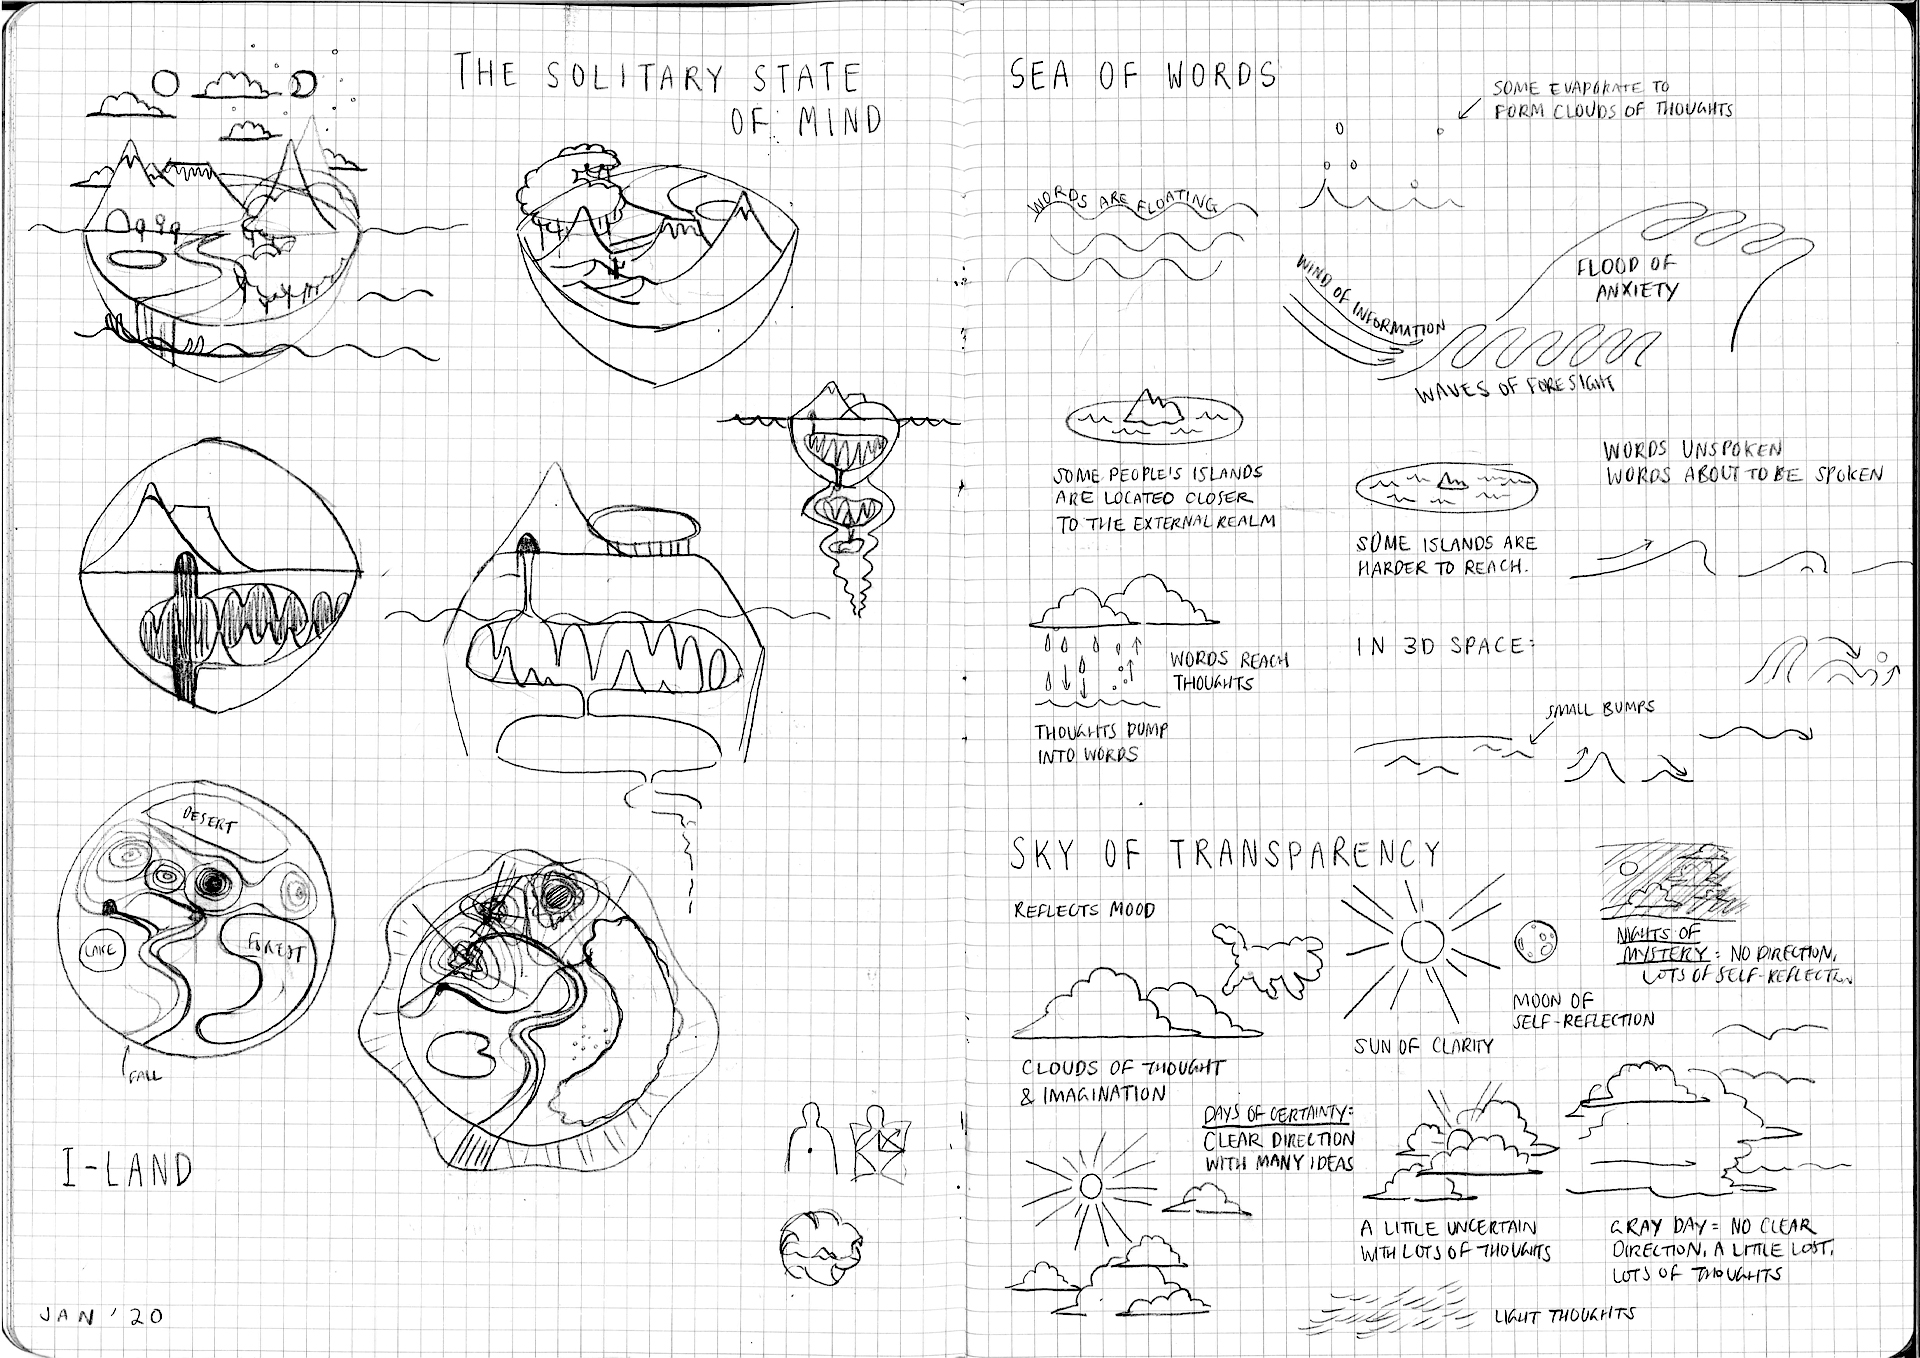 THE SOLITARY STATE
OF MIND
DESERT
LAKE
FOREST
FALL
I-LAND
JAN '20
SEA OF WORDS
SOME EVAPORATE TO
FORM CLOUDS OF THOUGHTS
WORDS ARE FLOATING
WIND OF INFORMATION
FLOOD OF
ANXIETY
WAVES OF FORESIGHT
SOME PEOPLE'S ISLANDS
ARE LOCATED CLOSER
TO THE EXTERNAL REALM
SOME ISLANDS ARE
HARDER TO REACH.
WORDS UNSPOKEN
WORDS ABOUT TO BE SPOKEN
WORDS REACH
THOUGHTS
THOUGHTS DUMP
INTO WORDS
IN 3D SPACE:
SMALL BUMPS
SKY OF TRANSPARENCY
REFLECTS MOOD
CLOUDS OF THOUGHT
& IMAGINATION
SUN OF CLARITY
MOON OF
SELF-REFLECTION
NIGHTS OF
MYSTERY: NO DIRECTION,
LOTS OF SELF-REFLECTION
DAYS OF CERTAINTY:
CLEAR DIRECTION
WITH MANY IDEAS
A LITTLE UNCERTAIN
WITH LOTS OF THOUGHTS
GRAY DAY: NO CLEAR
DIRECTION, A LITTLE LOST,
LOTS OF THOUGHTS
LIGHT THOUGHTS